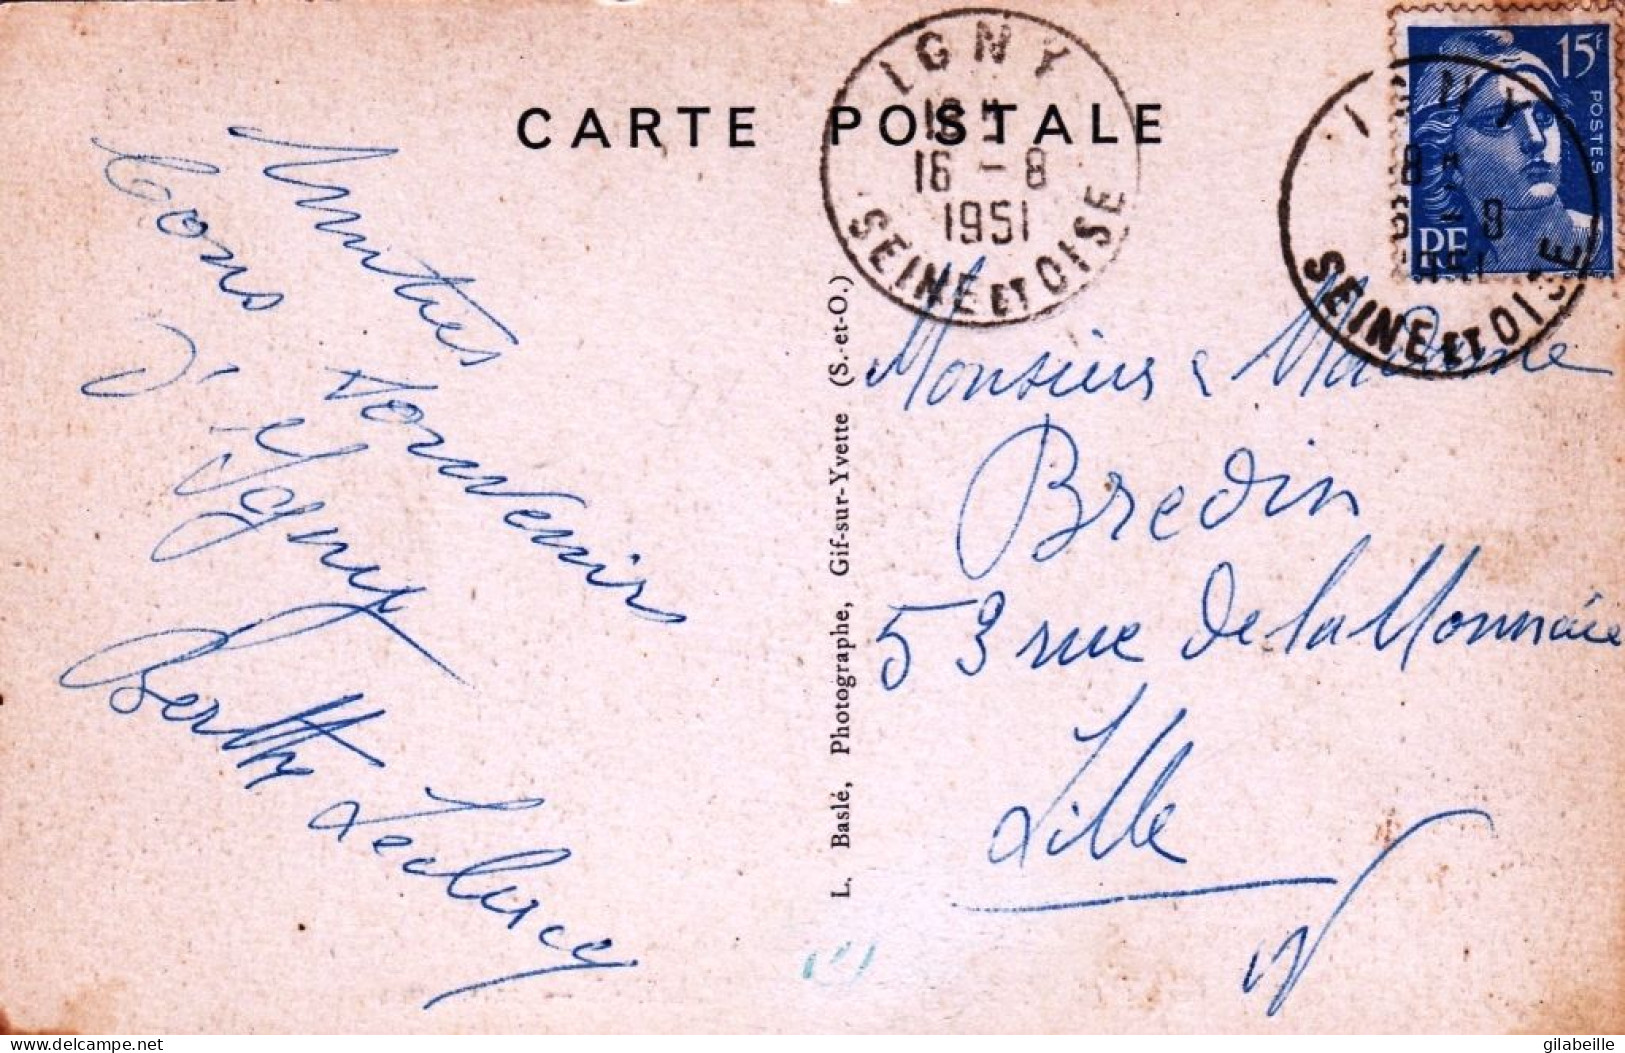 CARTE POSTALE
IGNY
18 H
16 - 8
1951
SEINE ET OISE
15F
POSTES
RF
IGNY
8 H
6 - 8
1951
SEINE ET OISE
Amitiés
bons souvenirs
d'Igny
Berthe
L. Baslé, Photographe, Gif-sur-Yvette (S.-et-O.)
Monsieur & Madame
Bredin
53 rue de la Monnaie
Lille
delcampe.net
gilabeille